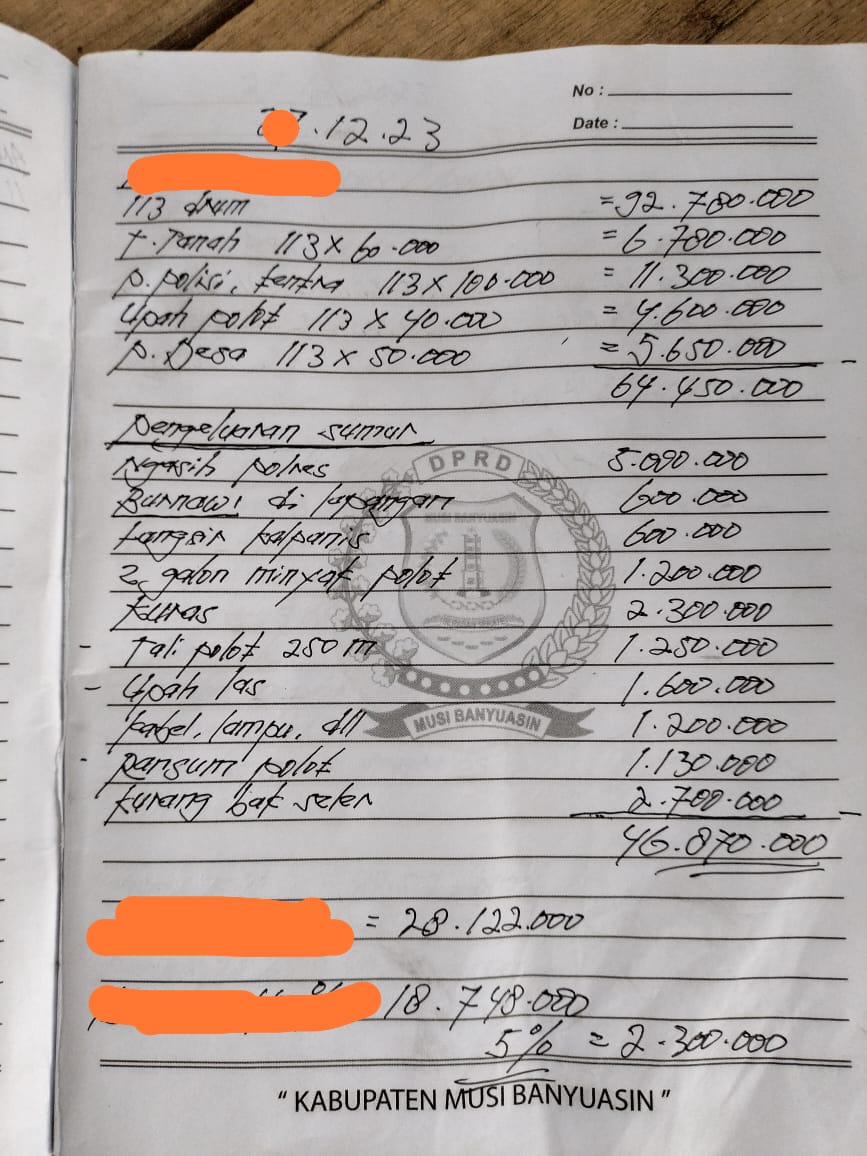 No :
Date :
.12.23
113 drum = 92.780.000
t. Tanah 113 x 60.000 = 6.780.000
p. polisi, tentra 113 x 100.000 = 11.300.000
Upah polot 113 x 40.000 = 4.600.000
p. Desa 113 x 50.000 = 5.650.000
64.450.000
Pengeluaran sumur
Ngasih polres 5.000.000
Burnawi di lapangan 600.000
Langsir kalpanis 600.000
2 galon minyak polot 1.200.000
Kuras 2.300.000
- Tali polot 250 m 1.250.000
- Upah las 1.600.000
kabel, lampu, dll 1.200.000
- Ransum polot 1.130.000
kurang bak seler 2.700.000
46.870.000
DPRD
MUSI BANYUASIN
MUSI BANYUASIN
= 28.122.000
18.748.000
5% = 2.300.000
" KABUPATEN MUSI BANYUASIN "